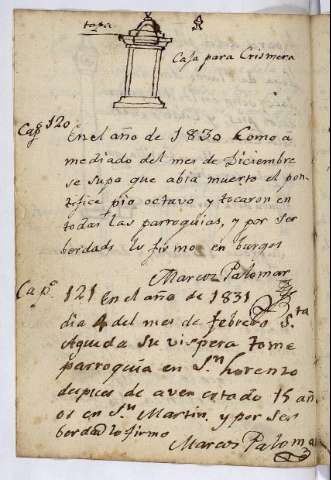 tapa
Caja para Crismera
Capº 120
En el año de 1830 Como a
mediado del mes de Diciembre
se supa que abia muerto el pon
tifice pio octavo y tocaron en
todas las parroquias, y por ser
berdad lo firmo en burgos
Marcos Palomar
Capº. 121 En el año de 1831
dia 4 del mes de febrero Sta
Agueda su vispera tome
parroquia en Sn Lorenzo
dupues de aver estado 15 añ
os en Sn Martin. y por ser
berdad lo firmo
Marcos Paloma